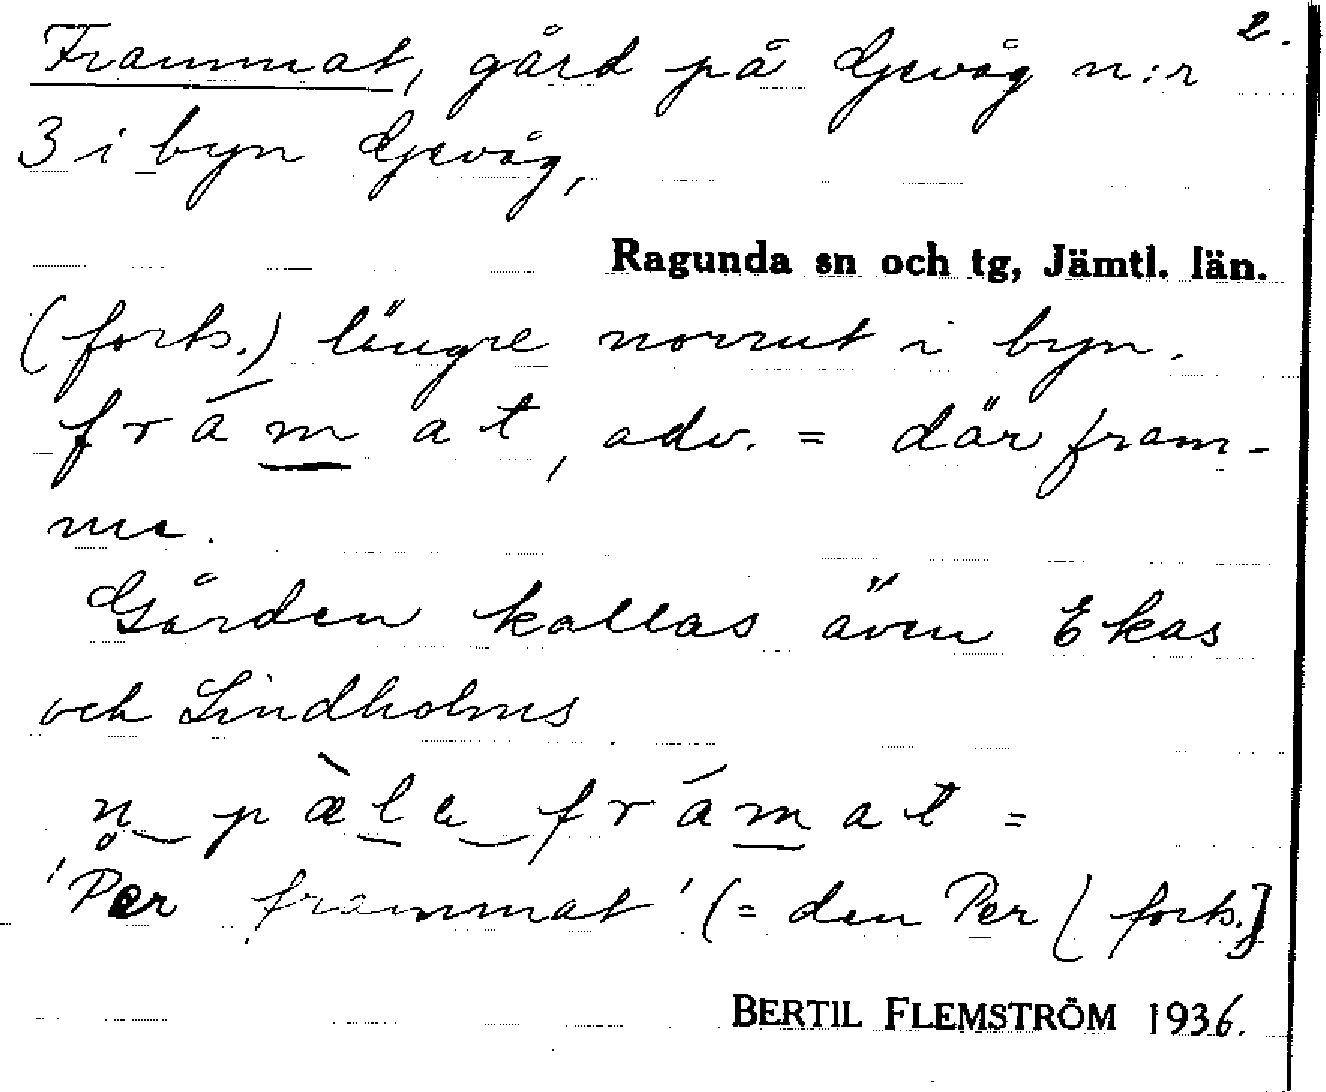 2.
Frammat, gård på Gevåg n:r
3 i byn Gevåg,
Ragunda sn och tg, Jämtl. län.
(forts.) längre norrut i byn.
frámat, adv. = där fram-
me.
Gården kallas även Ekas
och Lindholms
n̥ pæ̀le frámat =
'Per frammat' (= den Per [forts.]
BERTIL FLEMSTRÖM 1936.